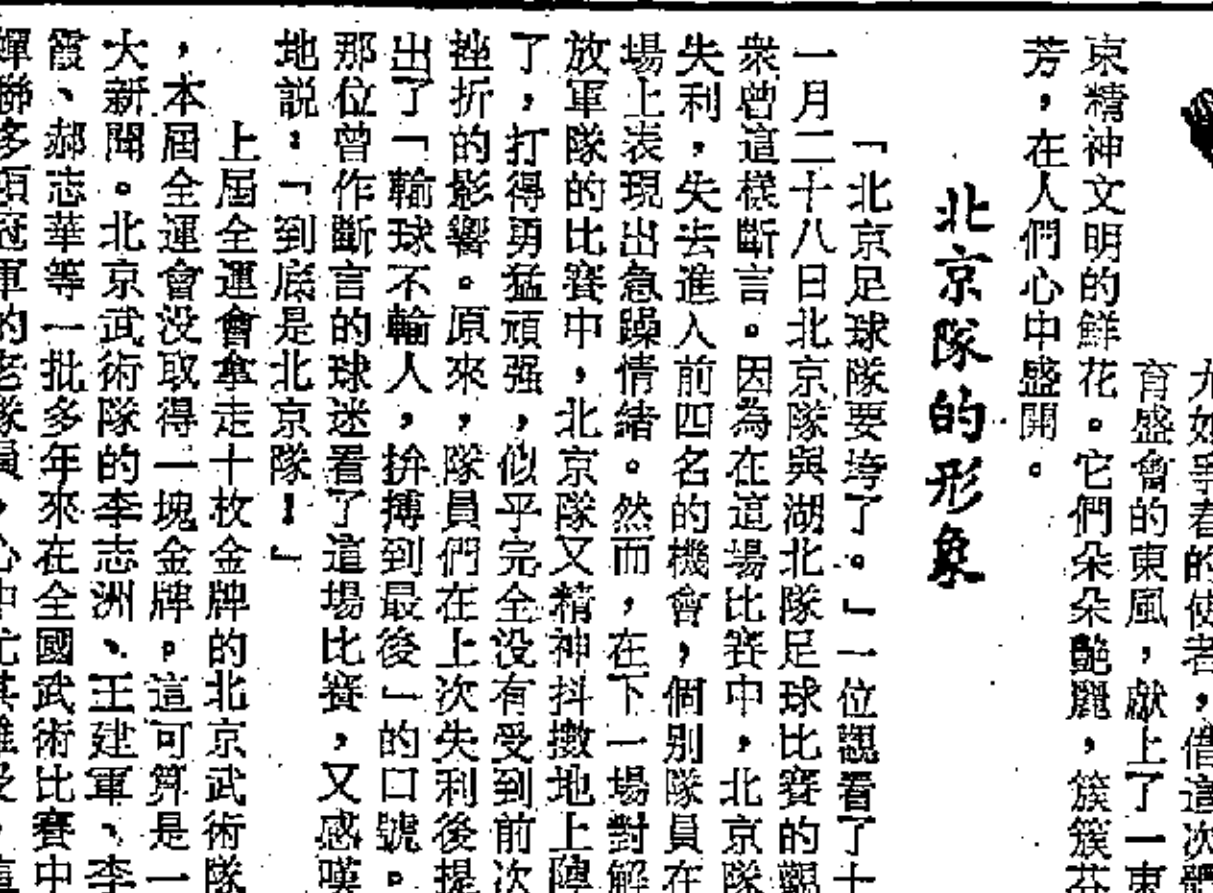 尤如爭春的使者，借這次體
育盛會的東風，獻上了一束
東精神文明的鮮花。它們朵朵艷麗，簇簇芬
芳，在人們心中盛開。
北京隊的形象
「北京足球隊要垮了。」一位觀看了十
一月二十八日北京隊與湖北隊足球比賽的觀
衆曾這樣斷言。因為在這場比賽中，北京隊
失利，失去進入前四名的機會，個別隊員在
場上表現出急躁情緒。然而，在下一場對解
放軍隊的比賽中，北京隊又精神抖擻地上陣
了，打得勇猛頑强，似乎完全没有受到前次
挫折的影響。原來，隊員們在上次失利後提
出了「輸球不輸人，拚搏到最後」的口號。
那位曾作斷言的球迷看了這場比賽，又感嘆
地説：「到底是北京隊！」
上屆全運會拿走十枚金牌的北京武術隊
，本屆全運會没取得一塊金牌。這可算是一
大新聞。北京武術隊的李志洲、王建軍、李
霞、郝志華等一批多年來在全國武術比賽中
蟬聯多項冠軍的老隊員，心中尤其難受，